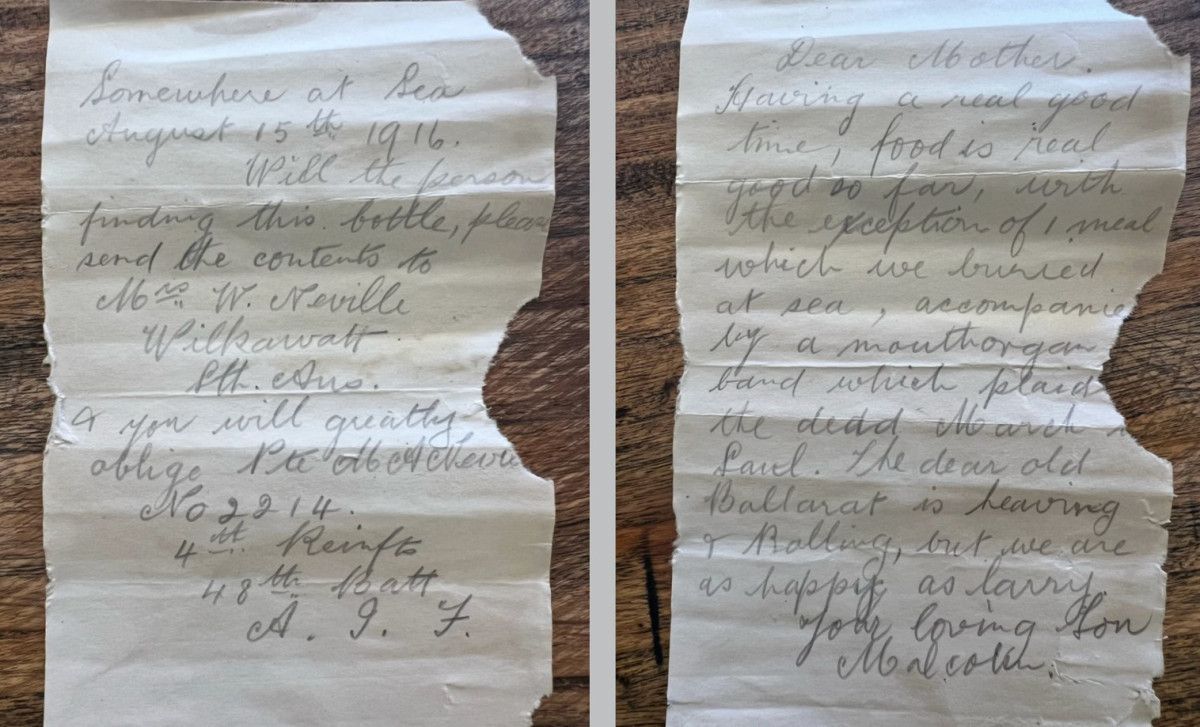 Somewhere at Sea
August 15th 1916.
Will the person
finding this bottle, please
send the contents to
Mrs W. Neville
Wilkawatt
Sth. Aus.
& you will greatly
oblige Pte M A Nevi
No 2214.
4th Reinfts
48th Batt
A. I. F.
Dear Mother.
Having a real good
time, food is real
good so far, with
the exception of 1 meal
which we buried
at sea, accompanie
by a mouthorgan
band which plaid
the dead March
Saul. The dear old
Ballarat is heaving
& Rolling, but we are
as happy as larry.
Your loving Son
Malcolm.